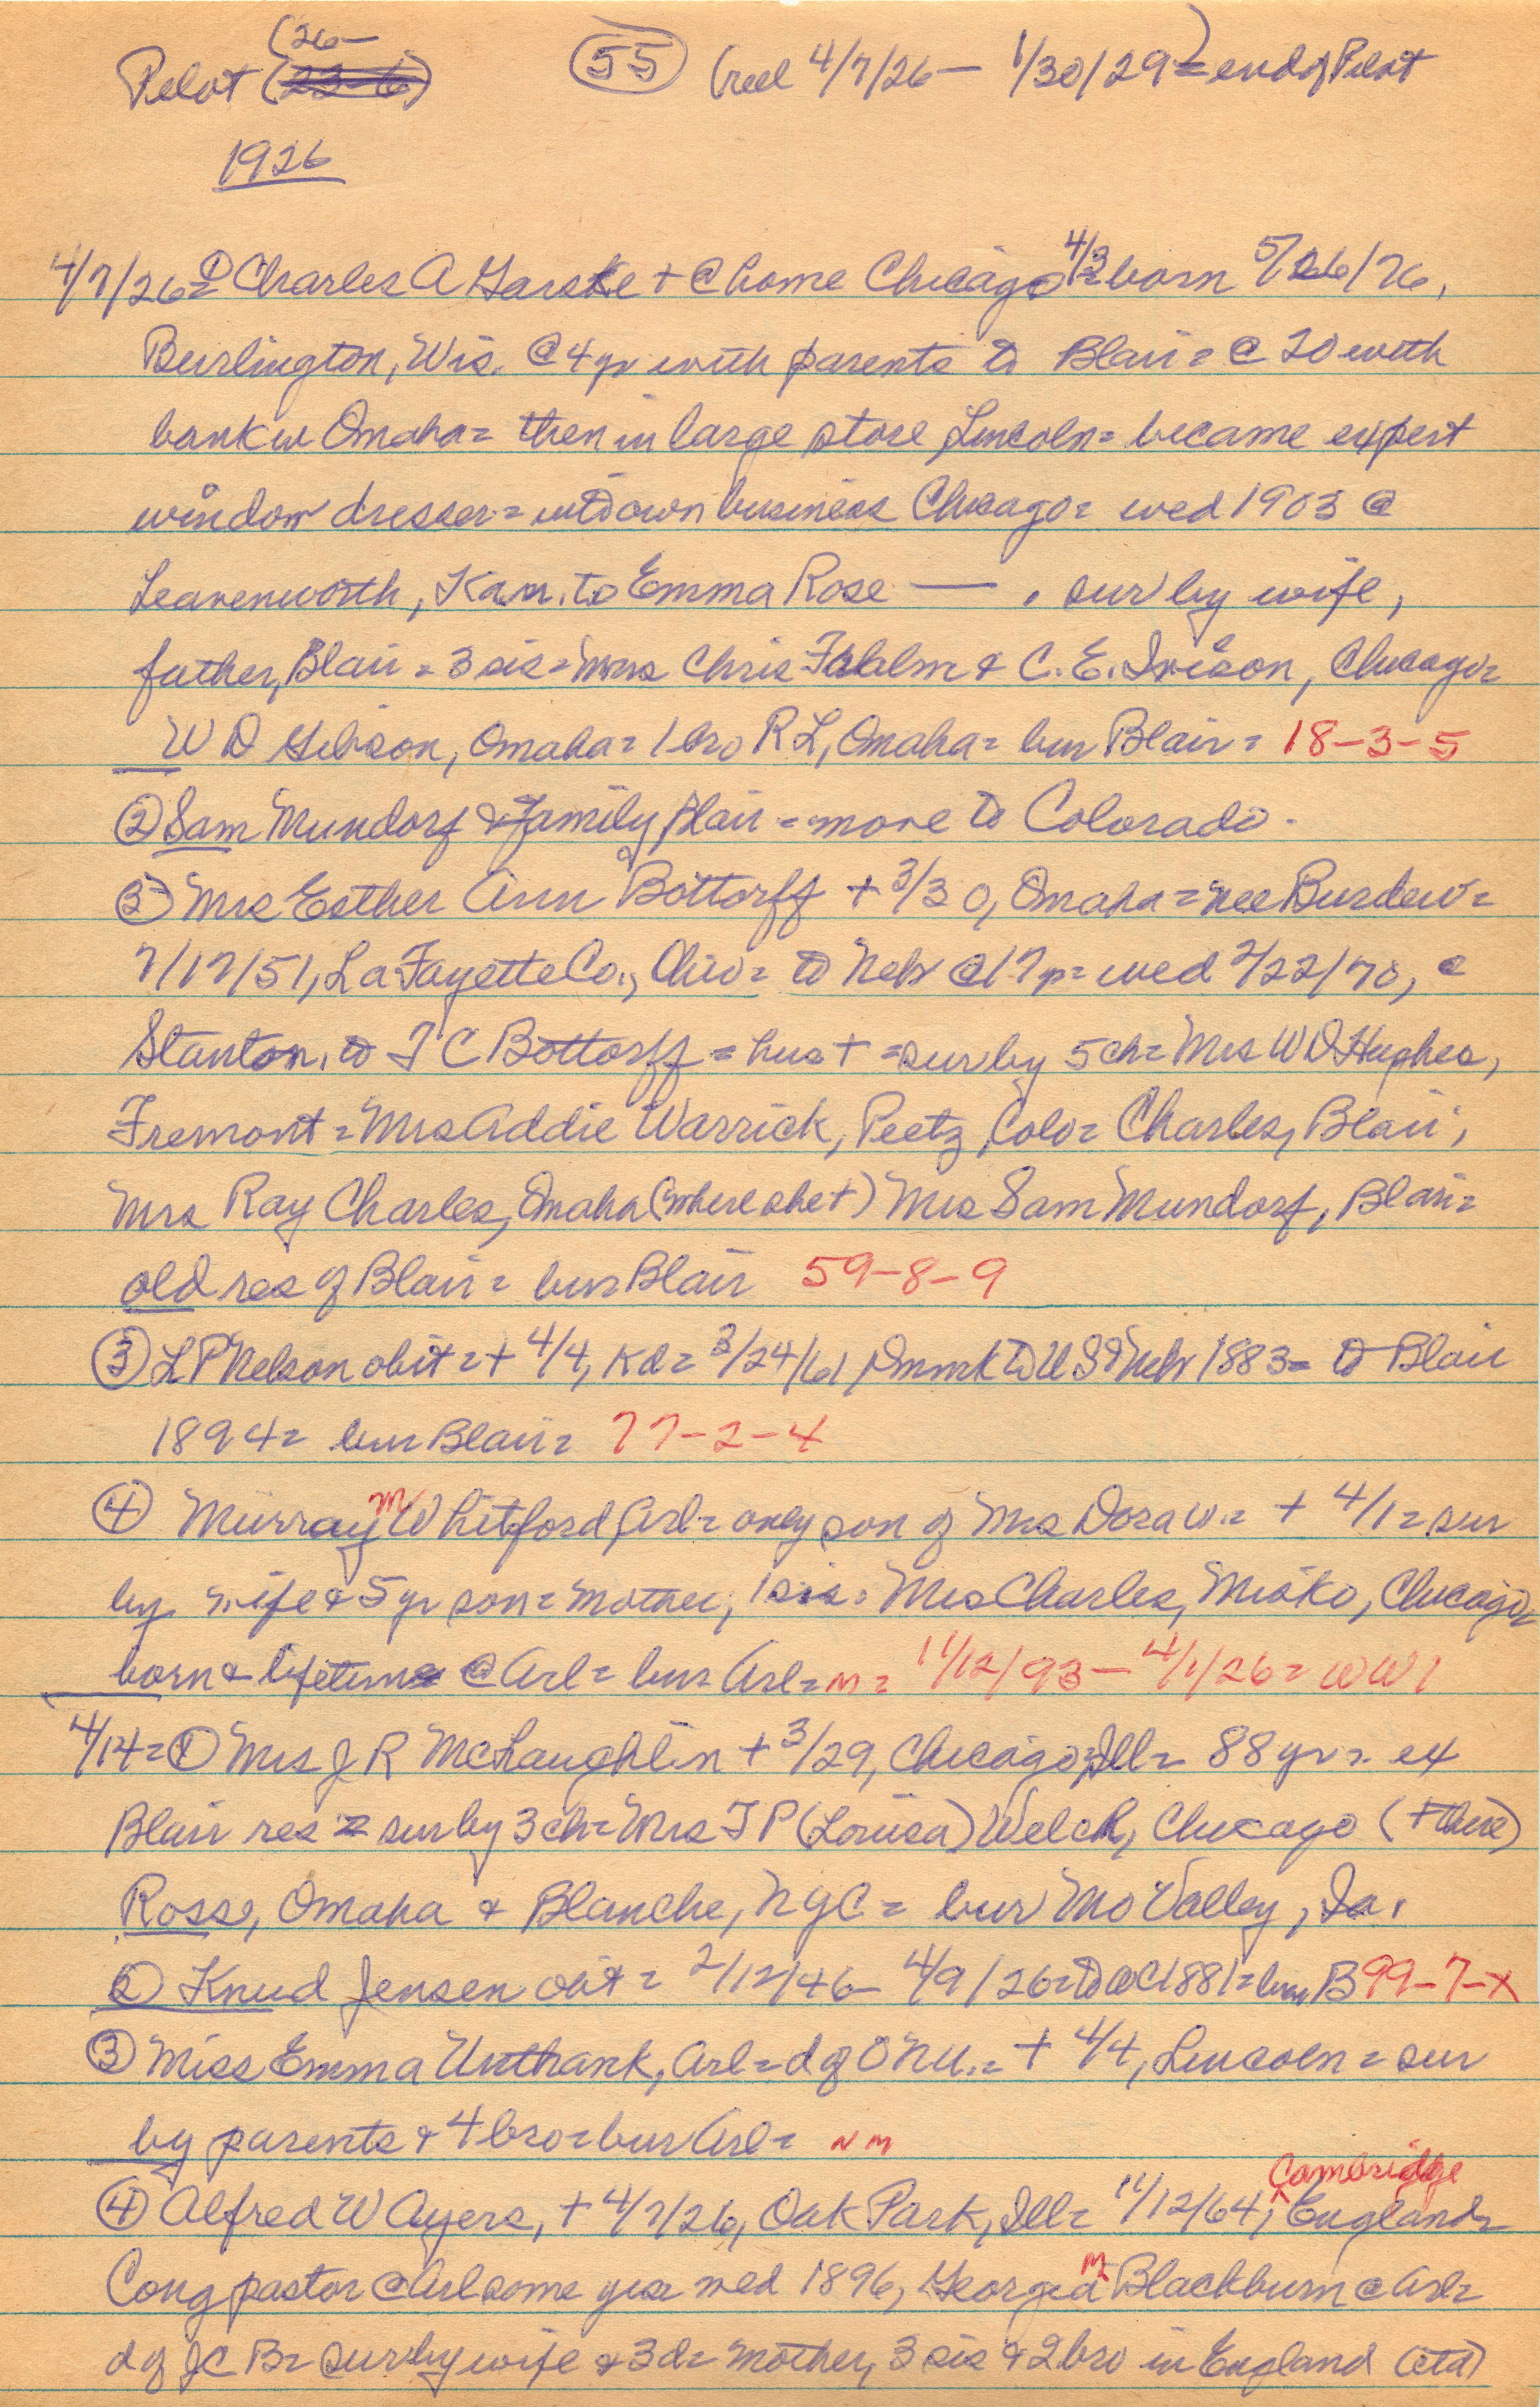 (26-
Pilot (23-6) 55 (reel 4/7/26 - 1/30/29) = end of Pilot
1926
4/7/26 = ① Charles A Garske + @ home Chicago 4/3 = born 5/26/76,
Burlington, Wis. @ 4 yr with parents to Blair = @ 20 with
bank in Omaha = then in large store, Lincoln = became expert
window dresser = into own business Chicago = wed 1903 @
Leavenworth, Kan. to Emma Rose — . sur by wife,
father, Blair = 3 sis = Mrs Chris & C. E. Iverson, Chicago =
W D Gibson, Omaha = 1 bro R L, Omaha = bur Blair = 18-3-5
② Sam Mundorf & family, Blair = move to Colorado.
③ Mrs Esther Ann Bottorff + 3/30, Omaha = nee Burdew =
7/17/51, La Fayette Co., Ohio = to Nebr @ 17 yr = wed 2/22/70, @
Stanton, to T C Bottorff = hus + = sur by 5 ch = Mrs W D Hughes,
Fremont = Mrs Addie Warrick, Peetz, Colo = Charles, Blair,
Mrs Ray Charles, Omaha (where she +) Mrs Sam Mundorf, Blair =
old res of Blair = bur Blair 59-8-9
③ L P Nelson obit = + 4/4, = 3/24/61, Dnmrk to U S & Nebr 1883 = to Blair
1894 = bur Blair = 77-2-4
④ Murray M Whitford, Arl = only son of Mrs Dora W. = + 4/1 = sur
by wife & 5 yr son = mother, 1 sis = Mrs Charles, Misko, Chicago =
born & lifetime @ Arl = bur Arl = M = 11/12/93 - 4/1/26 = WW1
4/14 = ① Mrs J R McLaughlin + 3/29, Chicago, Ill = 88 yr = ex
Blair res = sur by 3 ch = Mrs T P (Louisa) Welch, Chicago (+ there)
Ross, Omaha & Blanche, N Y C = bur Mo Valley, Ia.
② Knud Jensen obit = 2/12/46 - 4/9/26 = to WC 1881 = bur B 99-7-X
③ Miss Emma Unthank, Arl = d of O N U. = + 4/4, Lincoln = sur
by parents & 4 bro = bur Arl = N M
④ Alfred W Ayers, + 4/7/26, Oak Park, Ill = 11/12/64, Cambridge England =
Cong pastor @ Arl some yrs = wed 1896, Georgia M Blackburn @ Arl =
d of J C B = sur by wife & 3 d = mother, 3 sis & 2 bro in England (etd)